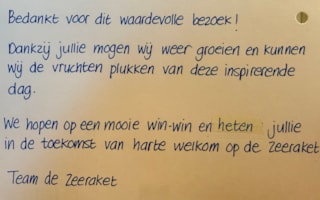 Bedankt voor dit waardevolle bezoek!
Dankzij jullie mogen wij weer groeien en kunnen
wij de vruchten plukken van deze inspirerende
dag.
We hopen op een mooie win-win en heten jullie
in de toekomst van harte welkom op de Zeeraket
Team de Zeeraket